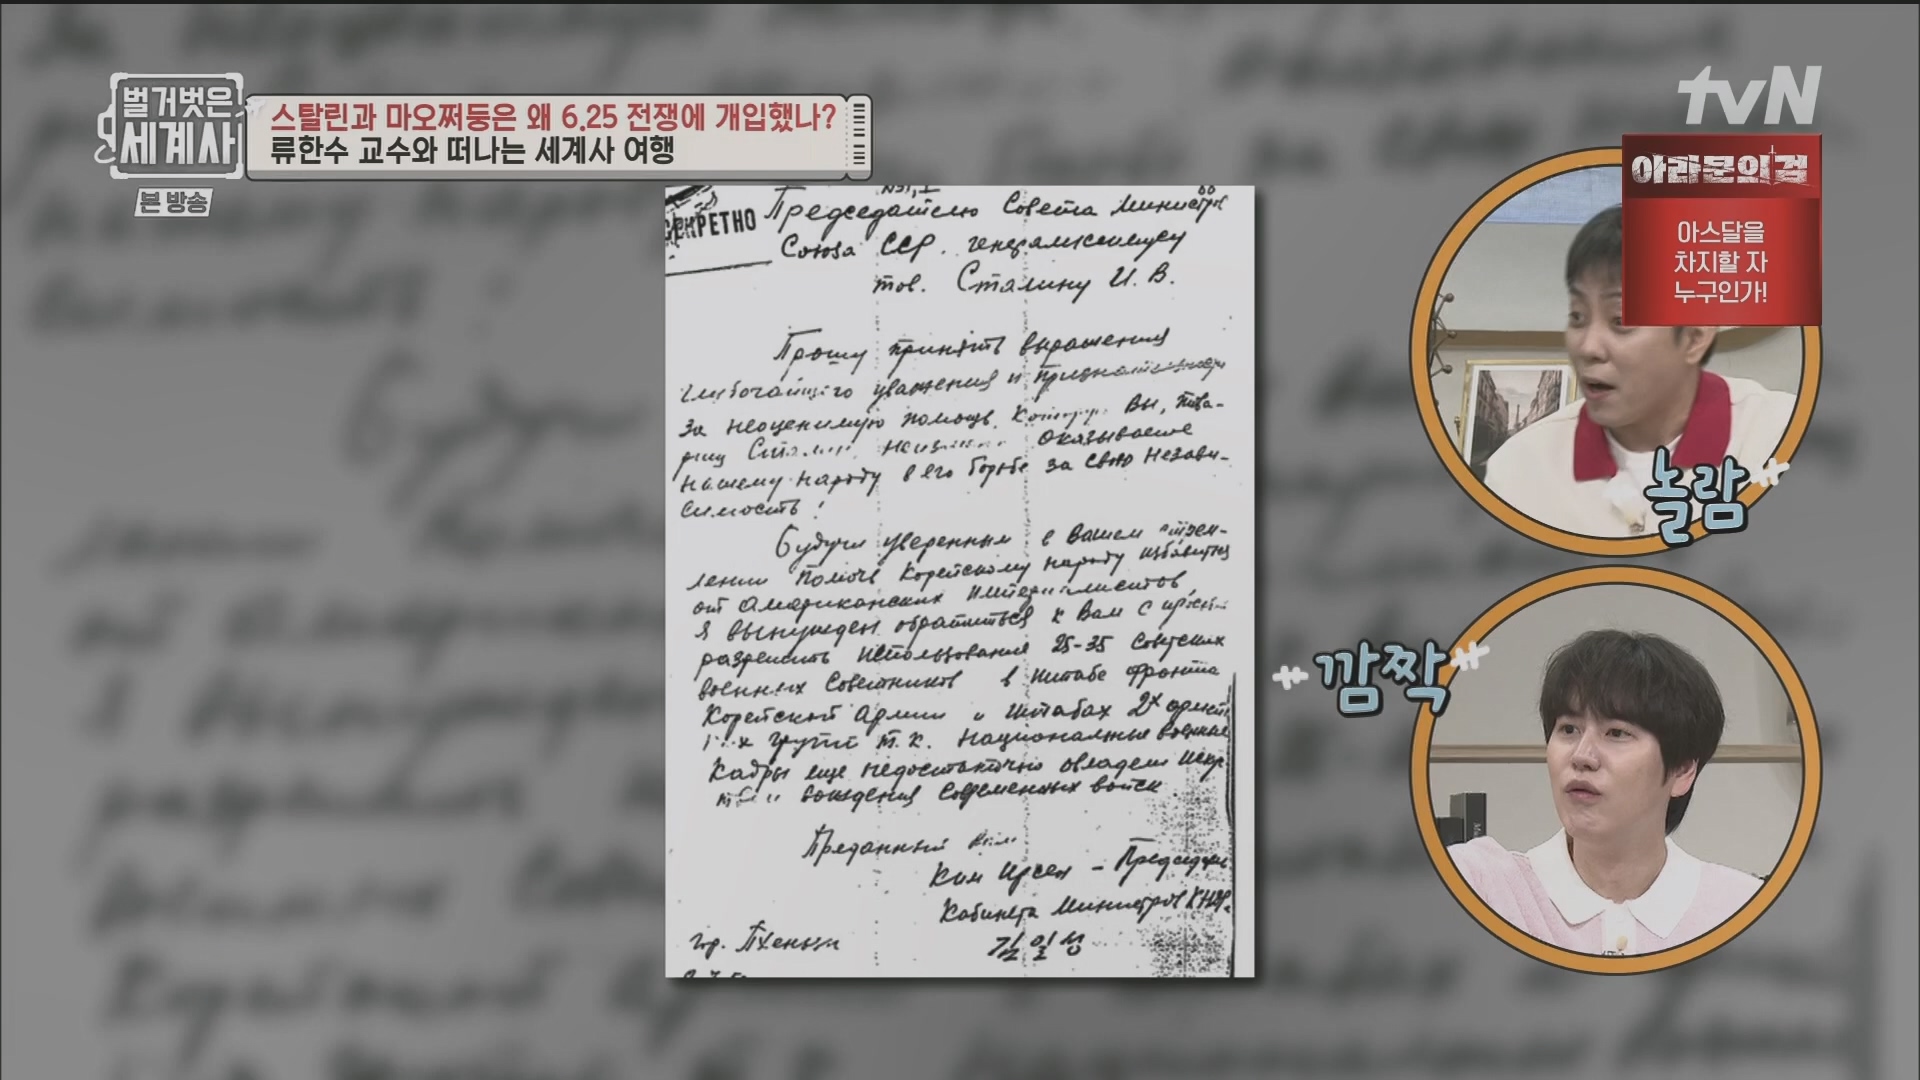 벌거벗은
세계사
본 방송
스탈린과 마오쩌둥은 왜 6.25 전쟁에 개입했나?
류한수 교수와 떠나는 세계사 여행
tvN
아라문의 검
아스달을
차지할 자
누구인가!
놀람
깜짝
Председателю Совета Министров
Союза ССР. генералиссимусу
тов. Сталину И. В.
Прошу принять выражения
глубочайшего уважения и
за неоценимую помощь, Вы, това-
рищ оказываете
нашему народу в его борьбе за свою незави-
симость!
Будучи уверенным в Вашем
помочь Корейскому народу избавиться
от американских империалистов,
я вынужден обратиться к Вам с
разрешить использование 25-35 советских
военных советников в штабе фронта
Корейской Армии и штабах 2х
групп т.к. национальные военные
кадры еще недостаточно овладели
вождения современных войск.
Преданный Вам
Ким Ирсен - Председатель
Кабинета Министров КНДР.
гор. Пхеньян
김일성